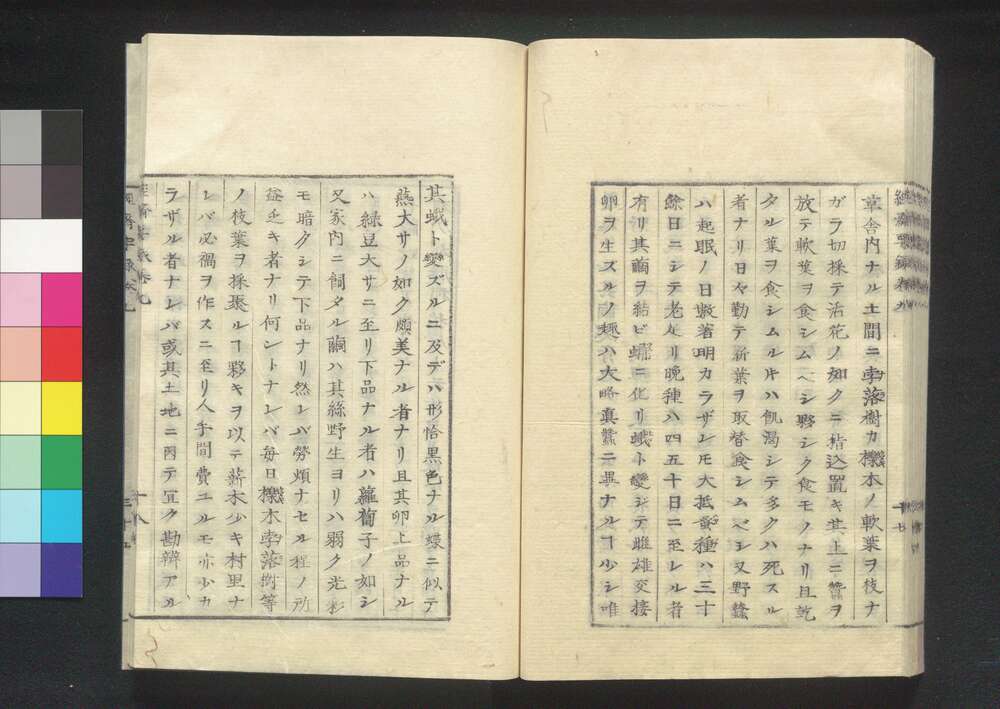 章舎内ナル土間ニ孛落樹カ機本ノ軟葉ヲ枝ナ
ガラ切採テ活花ノ如クニ揩込置キ其上ニ蠶ヲ
放テ軟葉ヲ食シムベシ夥シク食モノナリ且乾
タル葉ヲ食シムル片ハ飢渇シテ多クハ死スル
者ナリ日々勤テ新葉ヲ取替食シムベシ又野蠶
ハ起眠ノ日数著明カラザレモ大抵種ハ三十
餘日ニシテ老タリ晩種ハ四五十日ニ至レル者
有リ其繭ヲ結ビ蛹ニ化リ蛾ト變シテ雌雄交接
卵ヲ生ズルノ趣ハ大略真蠶ニ異ナルヿ少シ唯
其蛾ト變ズルニ及デハ形恰黒色ナル蝶ニ似テ
燕大サノ如ク頗美ナル者ナリ且其卵上品ナル
ハ緑豆大サニ至リ下品ナル者ハ蘿蔔子ノ如シ
又家内ニ飼タル繭ハ其絲野生ヨリハ弱ク光彩
モ暗クシテ下品ナリ然レバ勞煩ナセル程ノ所
益乏キ者ナリ何ントナレバ毎日機木孛落樹等
ノ枝葉ヲ採聚ルヿ夥キヲ以テ薪木少キ村里ナ
レバ必禍ヲ作スニ至リ人手間費ユルモ亦少カ
ラザル者ナレバ或其土地ニ因テ宜ク勘辨アル
十七
十八